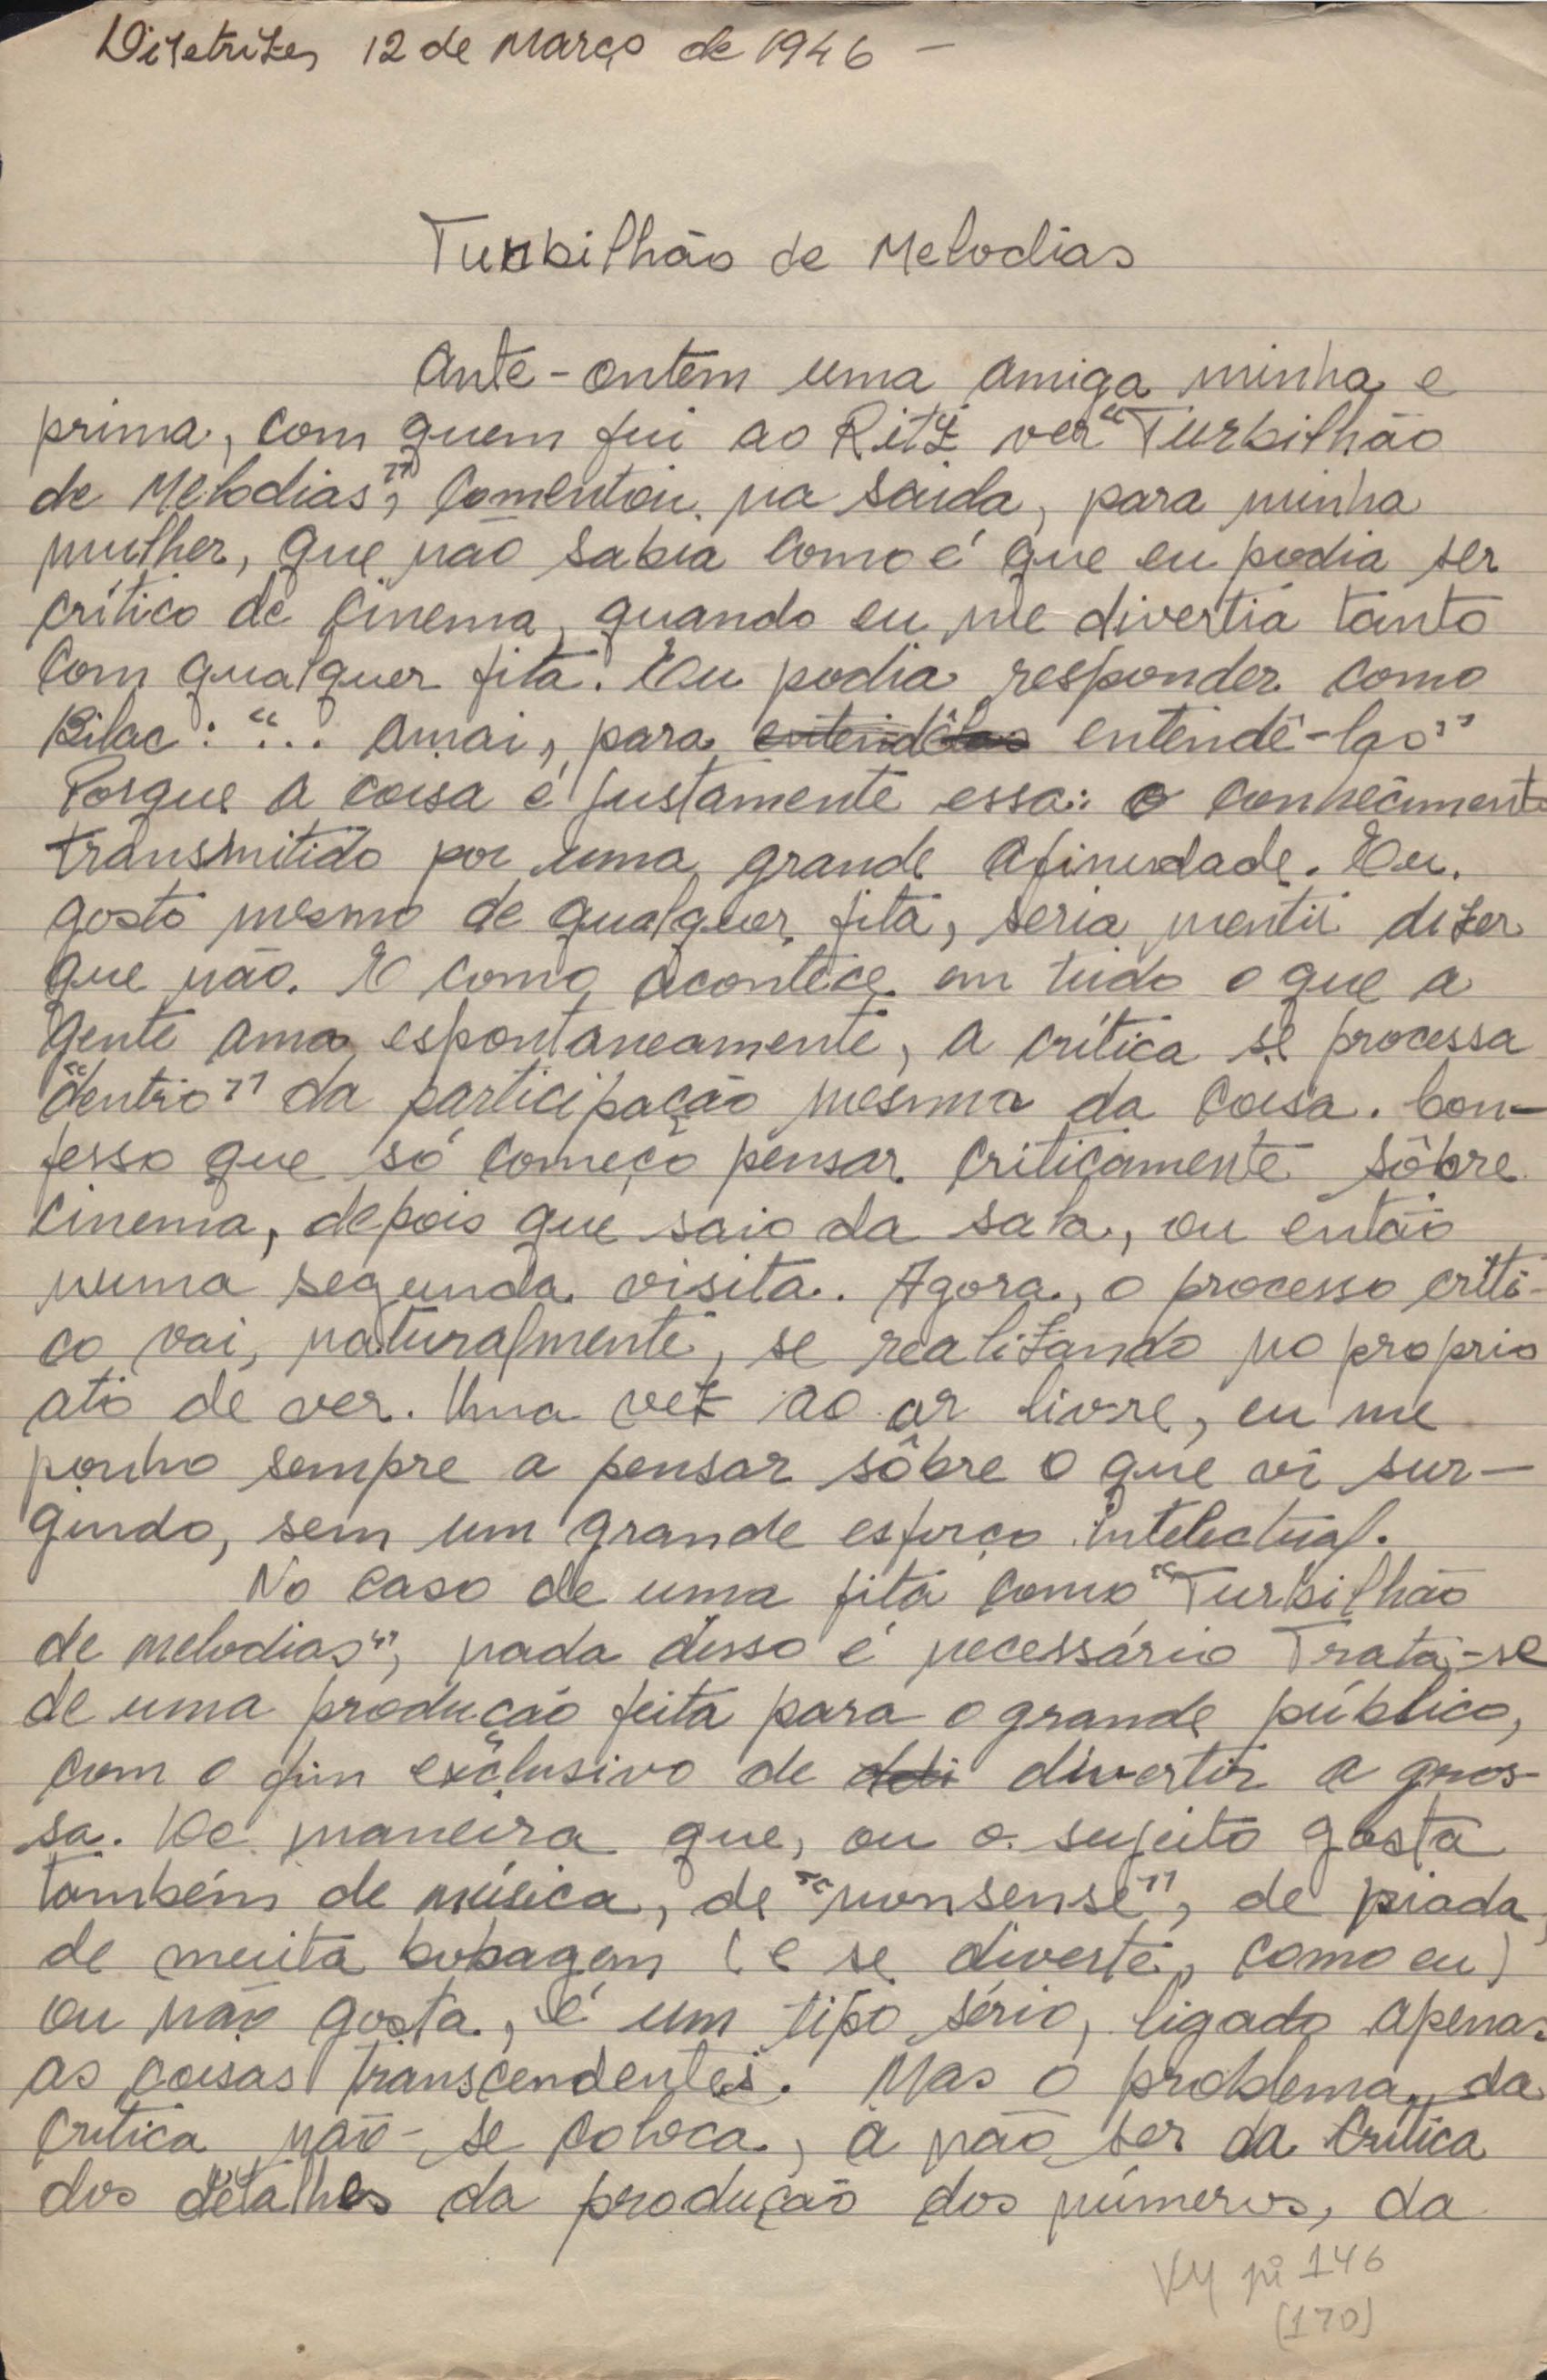 Diretrizes, 12 de Março de 1946 –
Turbilhão de Melodias
Ante-ontem uma amiga minha e
prima, com quem fui ao Ritz ver "Turbilhão
de Melodias", comentou na saida, para minha
mulher, que não sabia como é que eu podia ser
crítico de cinema, quando eu me divertia tanto
com qualquer fita. Eu podia responder como
Bilac: "... amai, para entendê-las entendê-las"
Porque a coisa é justamente essa: o conhecimento
transmitido por uma grande afinidade. Eu
gosto mesmo de qualquer fita, seria mentir dizer
que não. E como acontece em tudo o que a
gente ama espontaneamente, a crítica se processa
"dentro" da participação mesma da coisa. Con-
fesso que só começo pensar criticamente sôbre
cinema, depois que saio da sala, ou então
numa segunda visita. Agora, o processo críti-
co vai, naturalmente, se realizando no proprio
ato de ver. Uma vez ao ar livre, eu me
ponho sempre a pensar sôbre o que vi sur-
gindo, sem um grande esforço intelectual.
No caso de uma fita como "Turbilhão
de melodias", nada disso é necessário Trata-se
de uma produção feita para o grande público,
com o fim exclusivo de divertir a gros-
sa. De maneira que, ou o sujeito gosta
também de música, de "nonsense", de piada,
de muita bobagem (e se diverte, como eu)
ou não gosta, é um tipo sério, ligado apenas
as coisas transcendentes. Mas o problema da
crítica não se coloca, a não ser da crítica
dos detalhes da produção dos números, da
VM pi 146
(170)